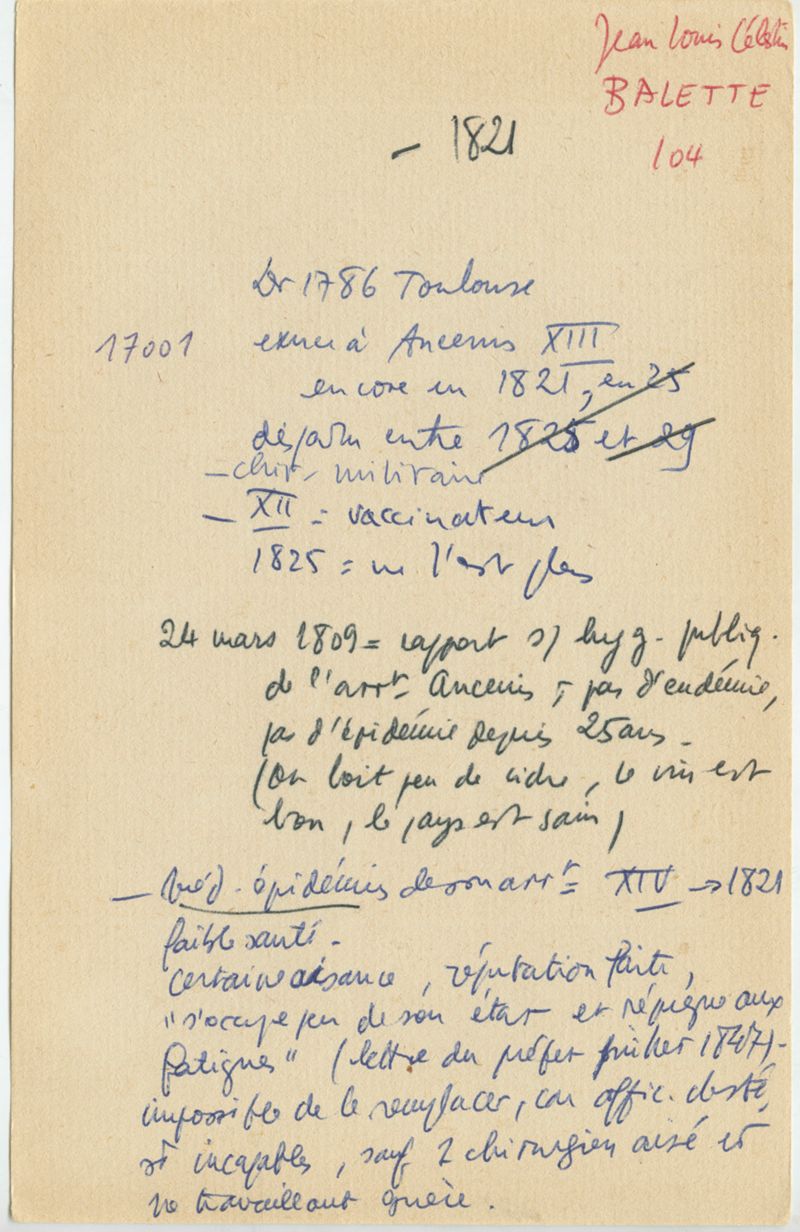 Jean Louis Célestin
BALETTE
104
– 1821
Dr 1786 Toulouse
17001 exerce à Ancenis XIII
encore en 1821, en 25
disparu entre 1825 et 29
– chir. militaire
– XII = vaccinateur
1825 = ne l'est plus
24 mars 1809 = rapport s/ hyg. publiq.
de l'arrt Ancenis ; pas d'endémie,
pas d'épidémie depuis 25 ans.
(On boit peu de cidre, le vin est
bon, le pays est sain)
– Méd. épidémies de son arrt = XIV → 1821
faible santé.
certaine aisance, réputation faite,
"s'occupe peu de son état et répugne aux
fatigues" (lettre du préfet juillet 1817) –
impossible de le remplacer, car offic. de sté
st incapables, sauf 2 chirurgien aisé et
ne travaillant guère.